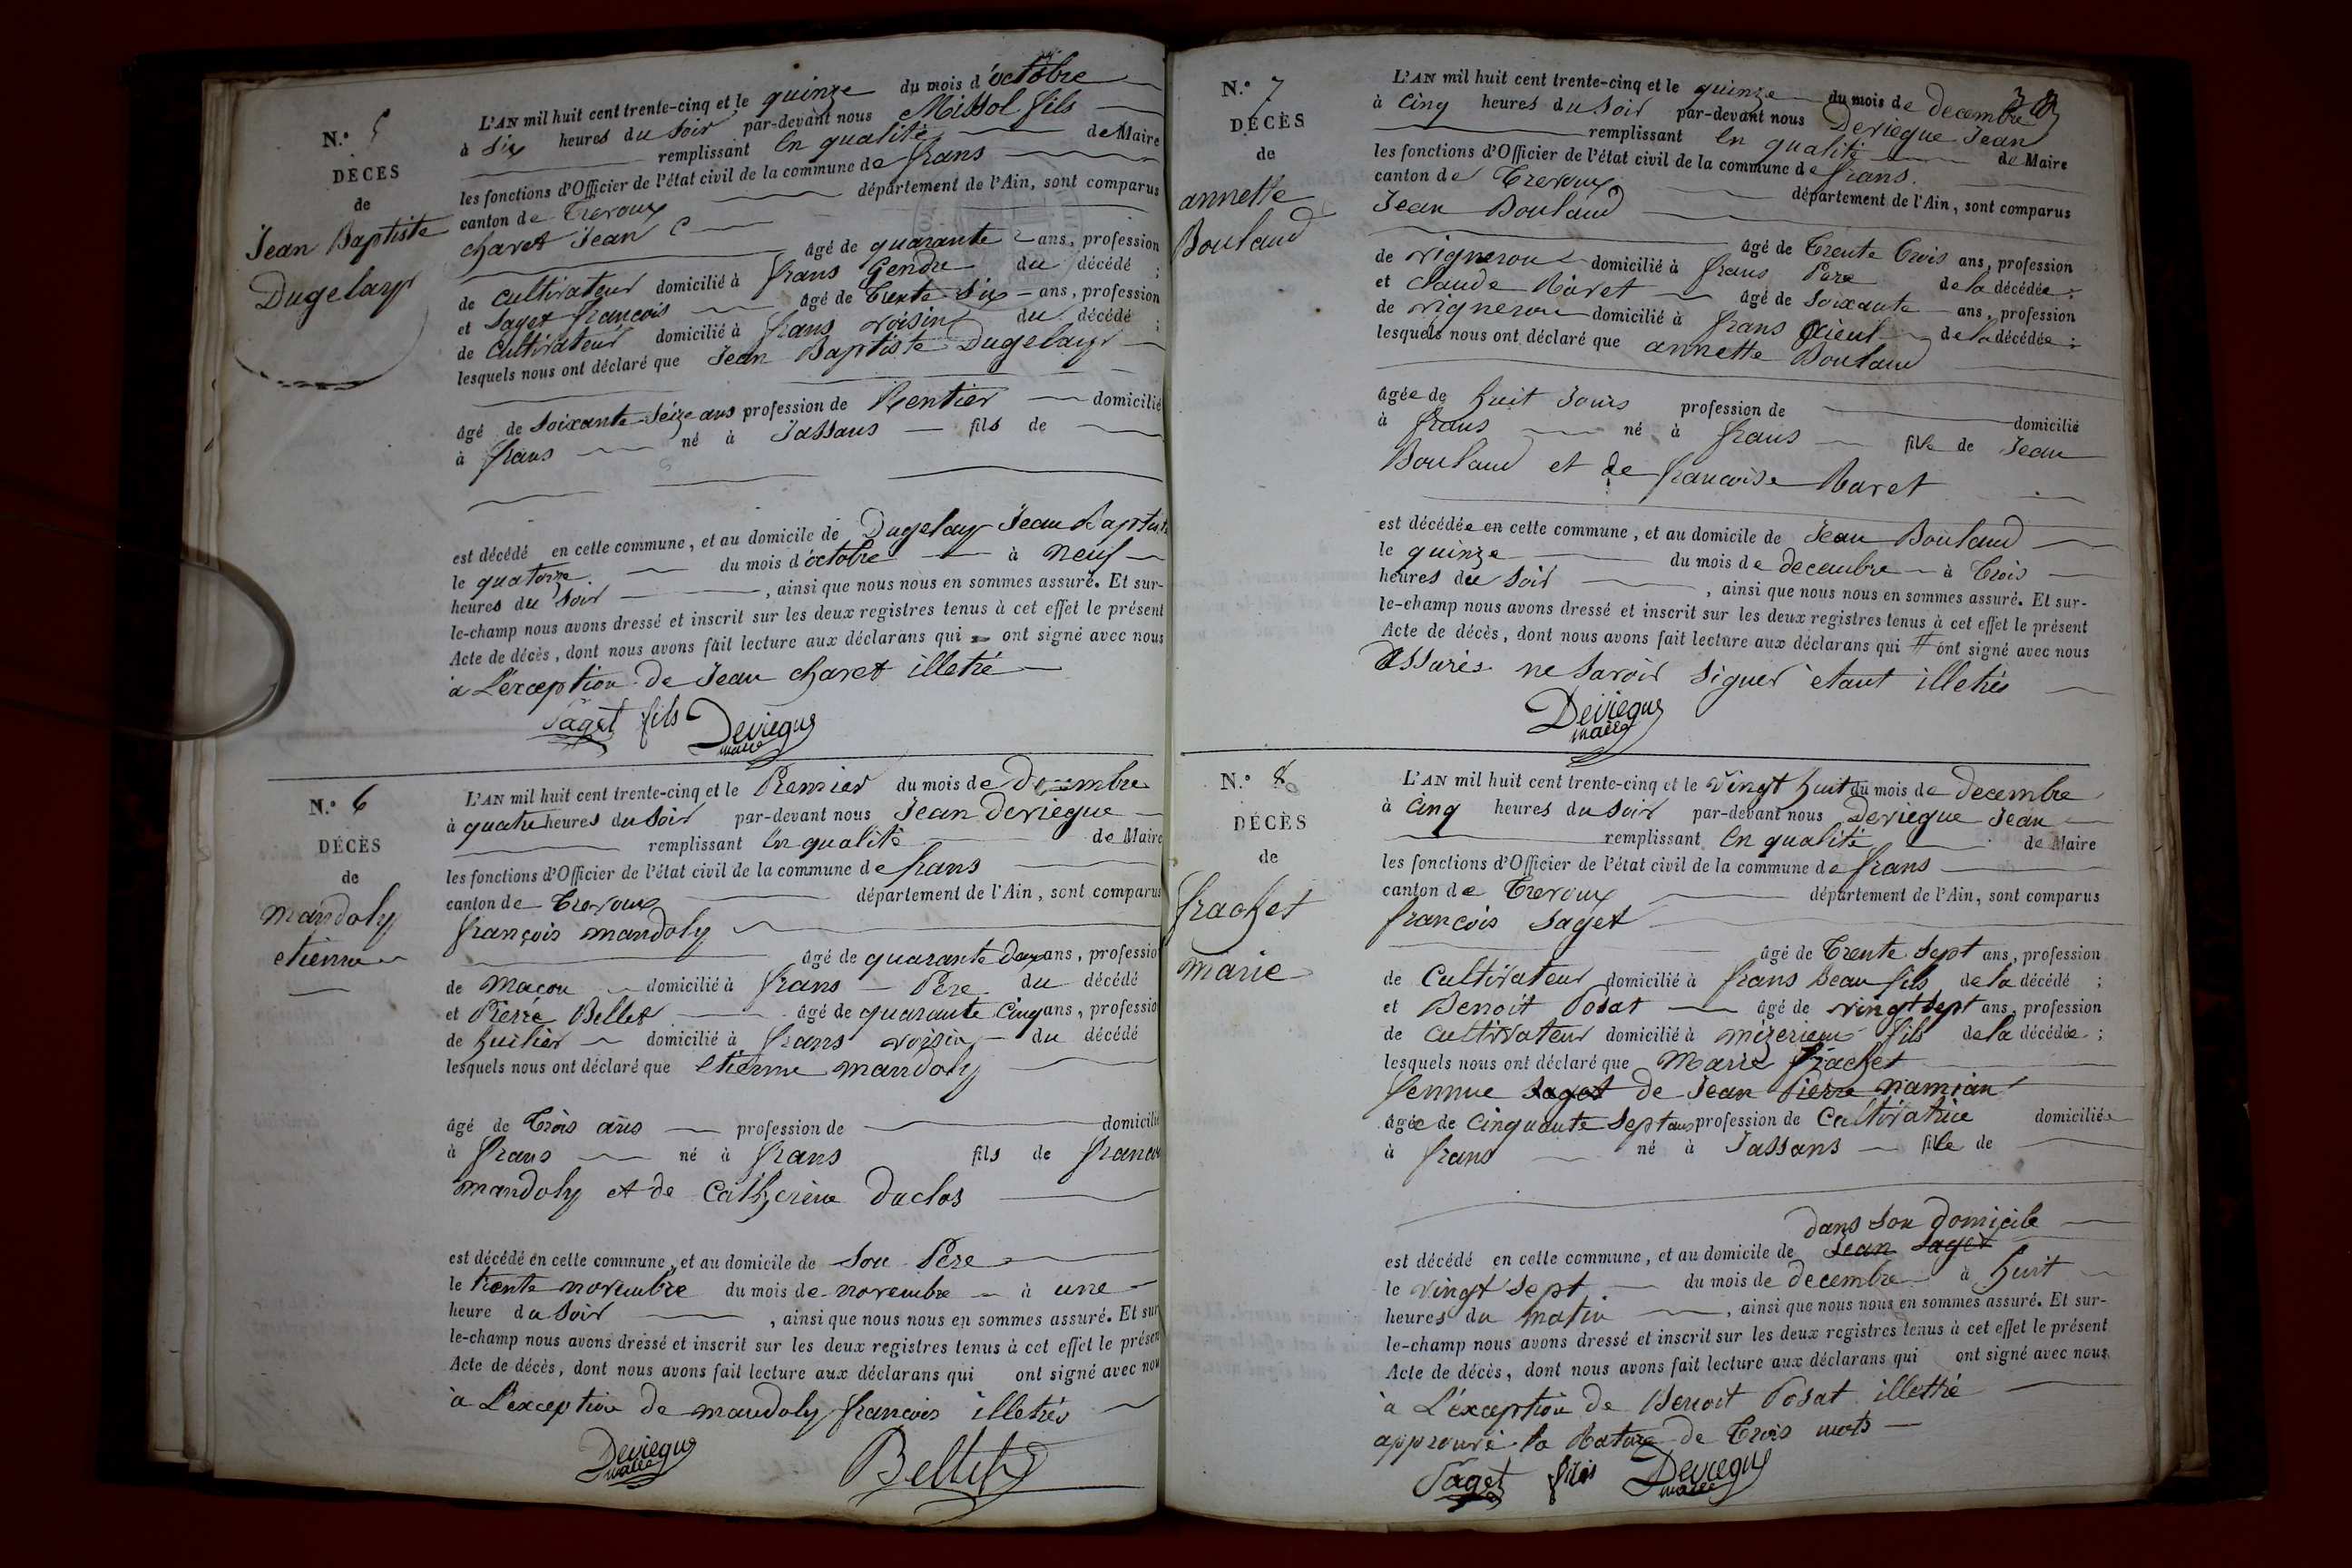 N.° 5
DÉCÈS
de
Jean Baptiste
Dugelay
L'AN mil huit cent trente-cinq et le quinze du mois d'octobre
à six heures du soir par-devant nous Missol fils
remplissant en qualité de Maire
les fonctions d'Officier de l'état civil de la commune de frans
canton de Trevoux département de l'Ain, sont comparus
charet Jean
âgé de quarante ans, profession
de cultivateur domicilié à frans Gendre du décédé ;
et Saget françois âgé de trente six ans, profession
de cultivateur domicilié à frans voisin du décédé ;
lesquels nous ont déclaré que Jean Baptiste Dugelay
âgé de soixante-seize ans profession de Rentier domicilié
à frans né à Jassans fils de
est décédé en cette commune, et au domicile de Dugelay Jean Baptiste
le quatorze du mois d'octobre à neuf
heures du soir , ainsi que nous nous en sommes assuré. Et sur-
le-champ nous avons dressé et inscrit sur les deux registres tenus à cet effet le présent
Acte de décès, dont nous avons fait lecture aux déclarans qui ont signé avec nous
a L'exception de Jean charet illetré
Saget fils Deviegue
maire
N.° 6
DÉCÈS
de
mandoly
etienne
L'AN mil huit cent trente-cinq et le Premier du mois de Decembre
à quatre heures du soir par-devant nous Jean deviegue
remplissant en qualité de Maire
les fonctions d'Officier de l'état civil de la commune de frans
canton de Trevoux département de l'Ain, sont comparus
françois mandoly
âgé de quarante deux ans, profession
de maçon domicilié à frans Père du décédé
et Pierre Bellet âgé de quarante cinq ans, profession
de huilier domicilié à frans voisin du décédé
lesquels nous ont déclaré que etienne mandoly
âgé de trois ans profession de domicilié
à frans né à frans fils de francois
mandoly et de Catherine Duclos
est décédé en cette commune, et au domicile de Son Père
le trente novembre du mois de novembre à une
heure du soir , ainsi que nous nous en sommes assuré. Et sur
le-champ nous avons dressé et inscrit sur les deux registres tenus à cet effet le présent
Acte de décès, dont nous avons fait lecture aux déclarans qui ont signé avec nous
à L'exception de mandoly francois illetrés
Deviegue
maire
Bellet
N.° 7
DÉCÈS
de
annette
Bouland
L'AN mil huit cent trente-cinq et le quinze du mois de decembre
à Cinq heures du soir par-devant nous Deviegue Jean
remplissant en qualité de Maire
les fonctions d'Officier de l'état civil de la commune de frans
canton de Trevoux département de l'Ain, sont comparus
Jean Bouland
âgé de trente trois ans, profession
de vigneron domicilié à frans Père de la décédée ;
et claude Baret âgé de soixante ans, profession
de vigneron domicilié à frans de la décédée ;
lesquels nous ont déclaré que annette Bouland
âgée de huit Jours profession de domicilié
à frans né à frans fille de Jean
Bouland et de francoise Baret
est décédée en cette commune, et au domicile de Jean Bouland
le quinze du mois de decembre à trois
heures du soir , ainsi que nous nous en sommes assuré. Et sur-
le-champ nous avons dressé et inscrit sur les deux registres tenus à cet effet le présent
Acte de décès, dont nous avons fait lecture aux déclarans qui ont signé avec nous
assurés ne savoir signer étant illetrés
Deviegue
maire
N.° 8
DÉCÈS
de
frachet
marie
L'AN mil huit cent trente-cinq et le vingt huit du mois de decembre
à cinq heures du soir par-devant nous Deviegue Jean
remplissant en qualité de Maire
les fonctions d'Officier de l'état civil de la commune de frans
canton de Trevoux département de l'Ain, sont comparus
françois Saget
âgé de trente sept ans, profession
de Cultivateur domicilié à frans beau fils de la décédé ;
et Benoit Posat âgé de vingt sept ans, profession
de cultivateur domicilié à mizerieux fils de la décédée ;
lesquels nous ont déclaré que Marie frachet
femme Saget de Jean Pierre namian
âgée de cinquante sept ans profession de Cultivatrice domiciliée
à frans né à Jassans fille de
dans son domicile
est décédé en cette commune, et au domicile de Jean Saget
le vingt sept du mois de decembre à huit
heures du matin , ainsi que nous nous en sommes assuré. Et sur-
le-champ nous avons dressé et inscrit sur les deux registres tenus à cet effet le présent
Acte de décès, dont nous avons fait lecture aux déclarans qui ont signé avec nous
à L'exception de Benoit Posat illettré
approuvé la Rature de trois mots
Saget fils Deviegue
maire